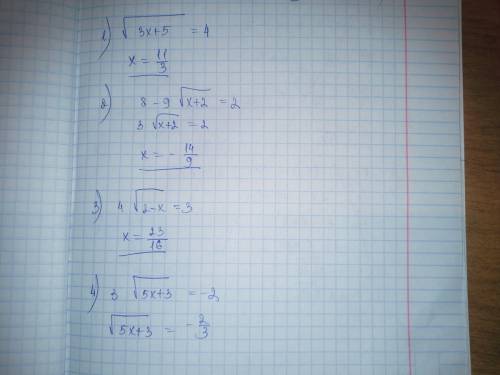 1) √3x+5 = 4
x = 11/3
2) 8 - 9 √x+2 = 2
3 √x+2 = 2
x = - 14/9
3) 4 √2-x = 3
x = 23/16
4) 3 √5x+3 = -2
√5x+3 = - 2/3